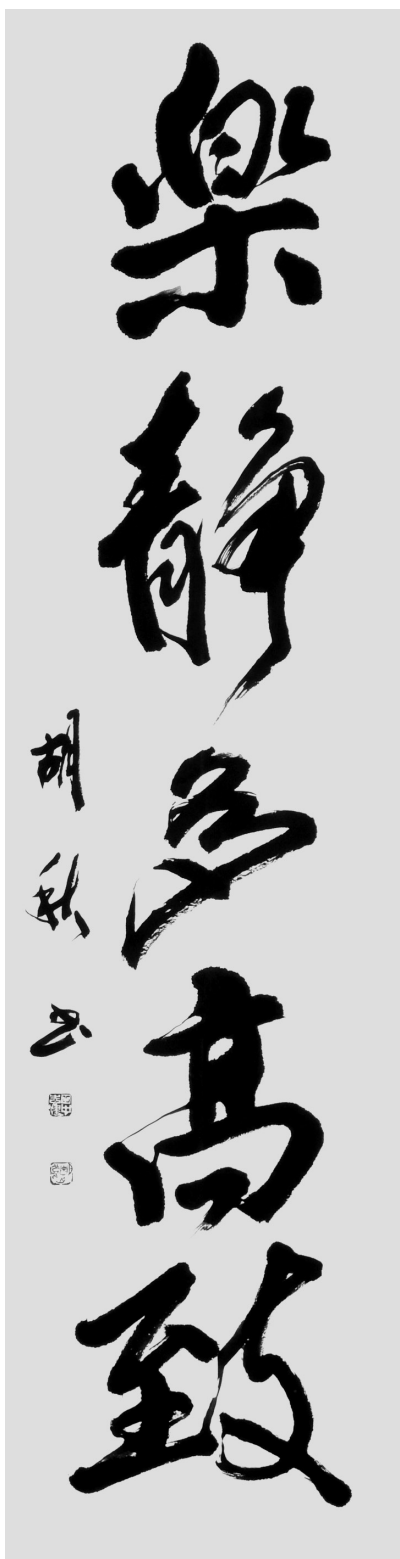 樂靜多高致
胡秋书